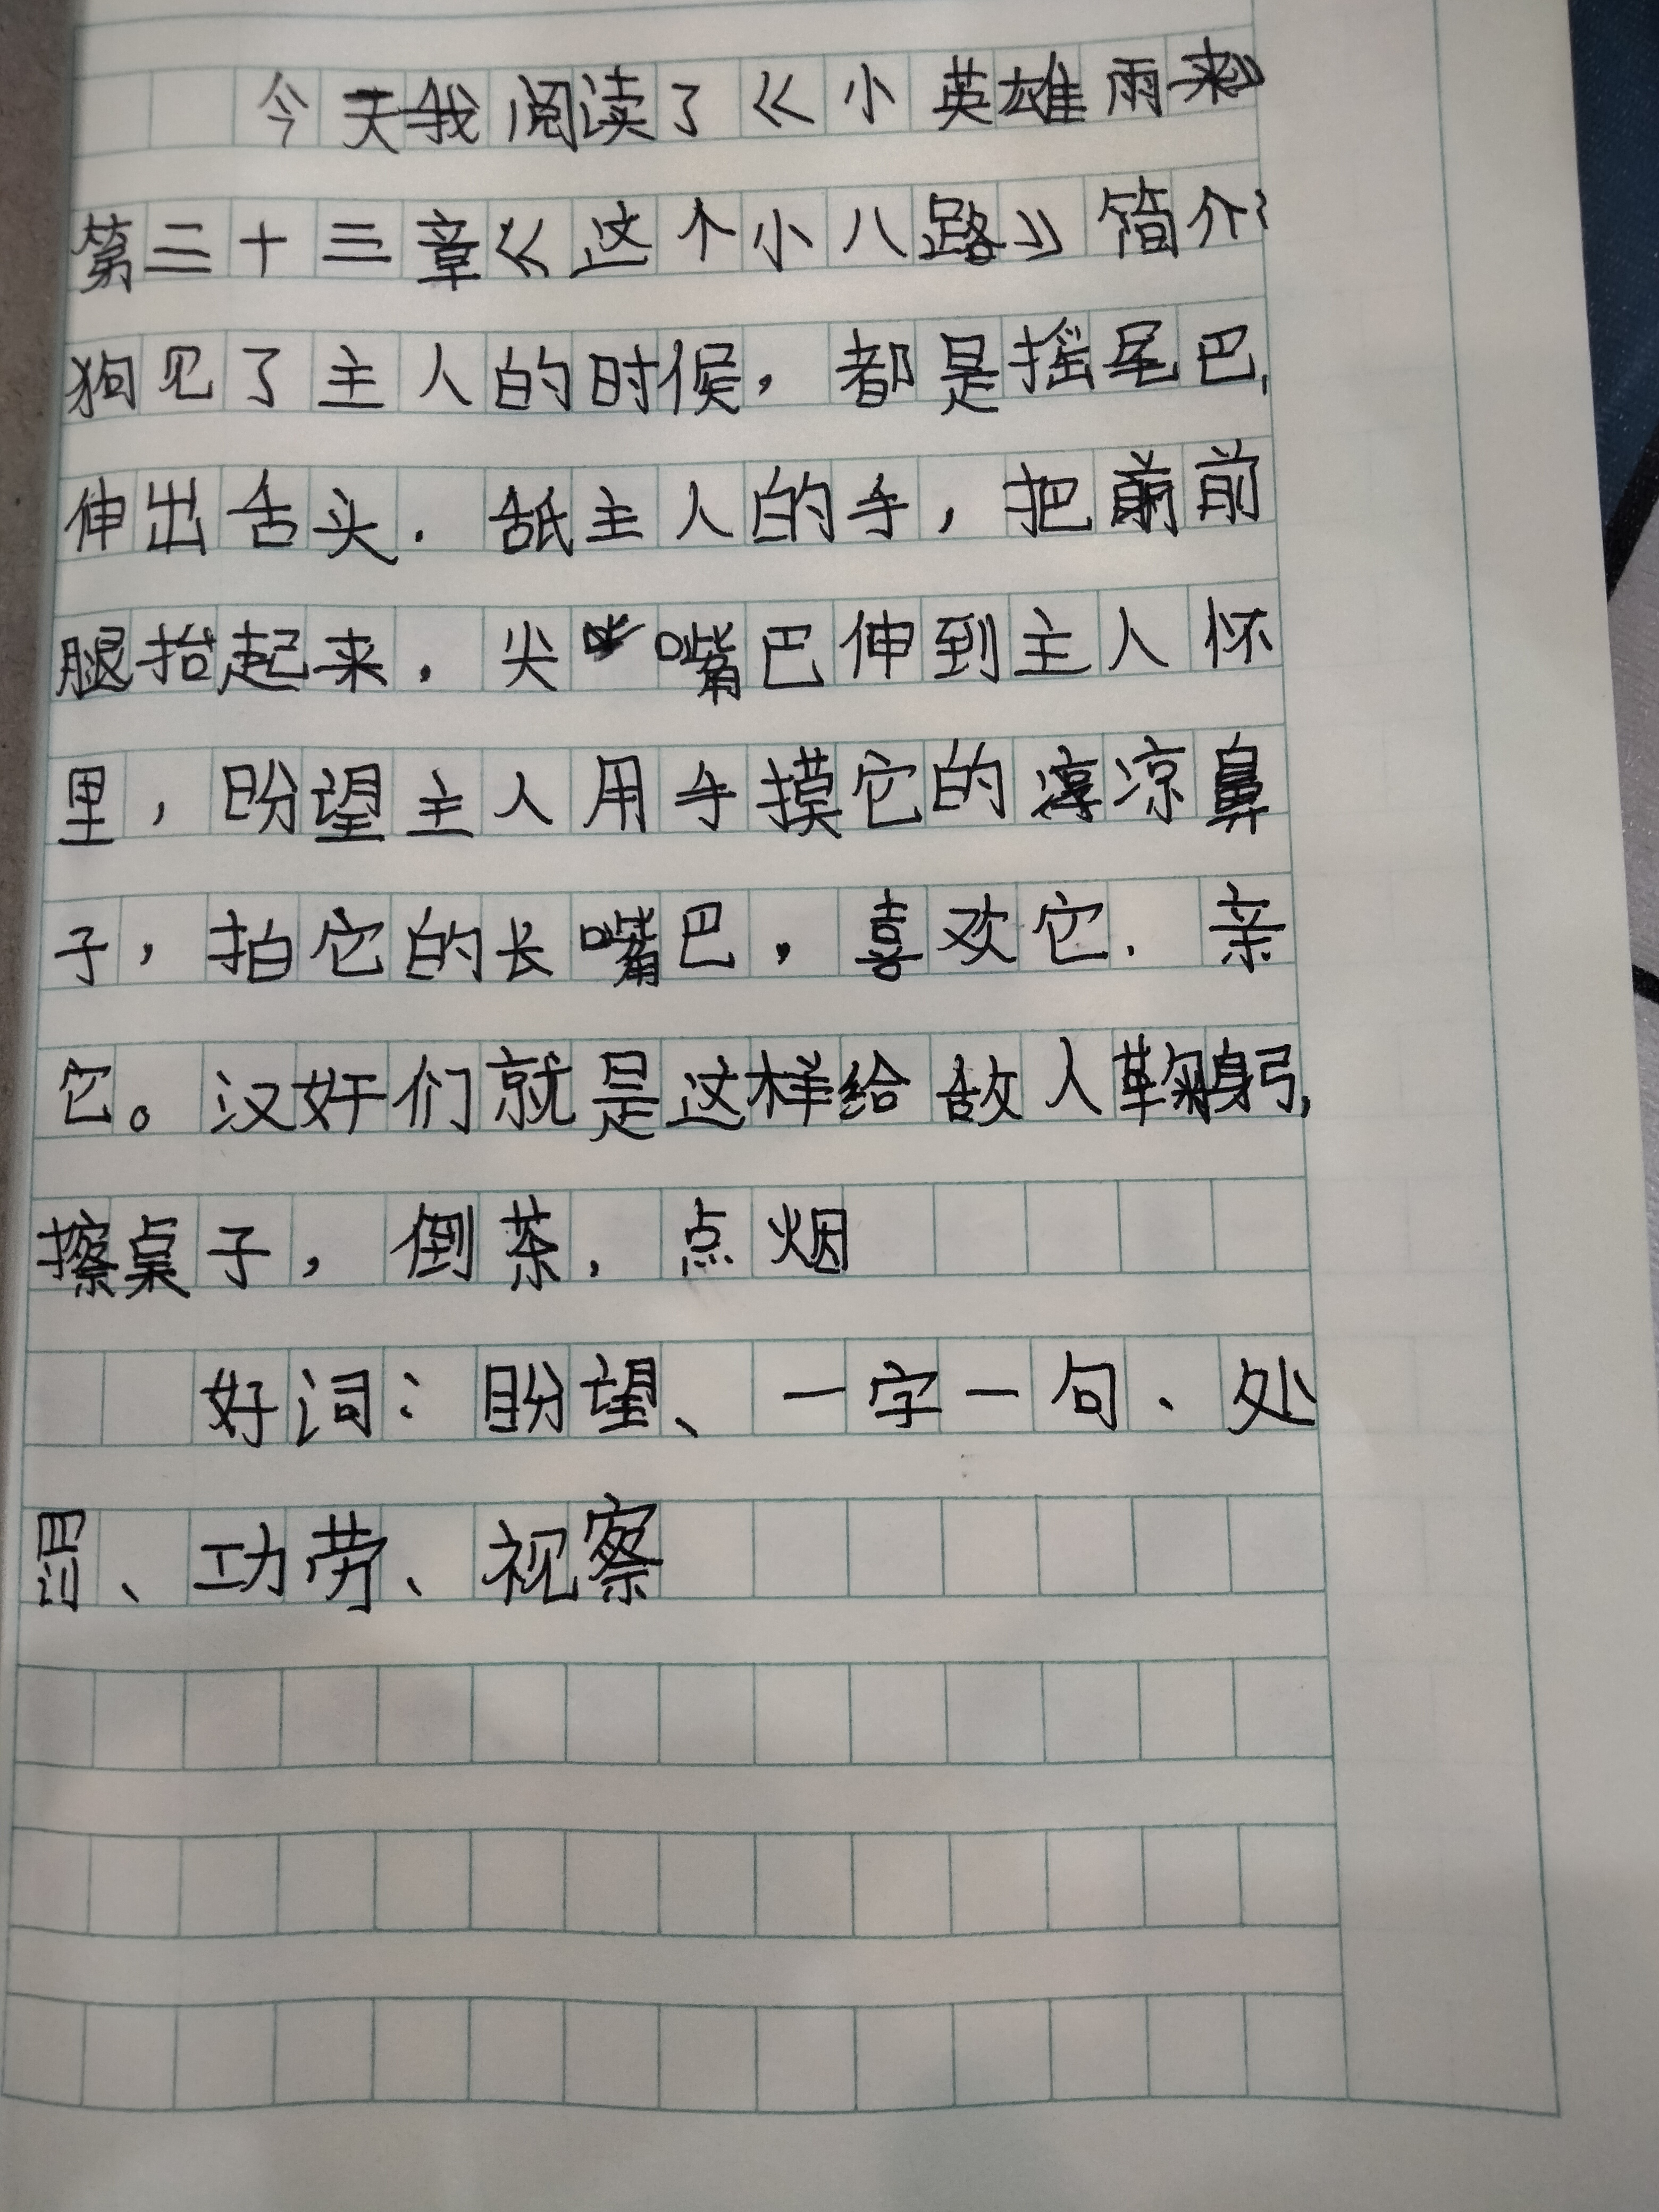 今天我阅读了《小英雄雨来》
第二十三章《这个小八路》简介:
狗见了主人的时候，都是摇尾巴，
伸出舌头，舐主人的手，把前
腿抬起来，尖嘴巴伸到主人怀
里，盼望主人用手摸它的凉鼻
子，拍它的长嘴巴，喜欢它，亲
它。汉奸们就是这样给敌人鞠躬，
擦桌子，倒茶，点烟
好词：盼望、一字一句、处
罚、功劳、视察